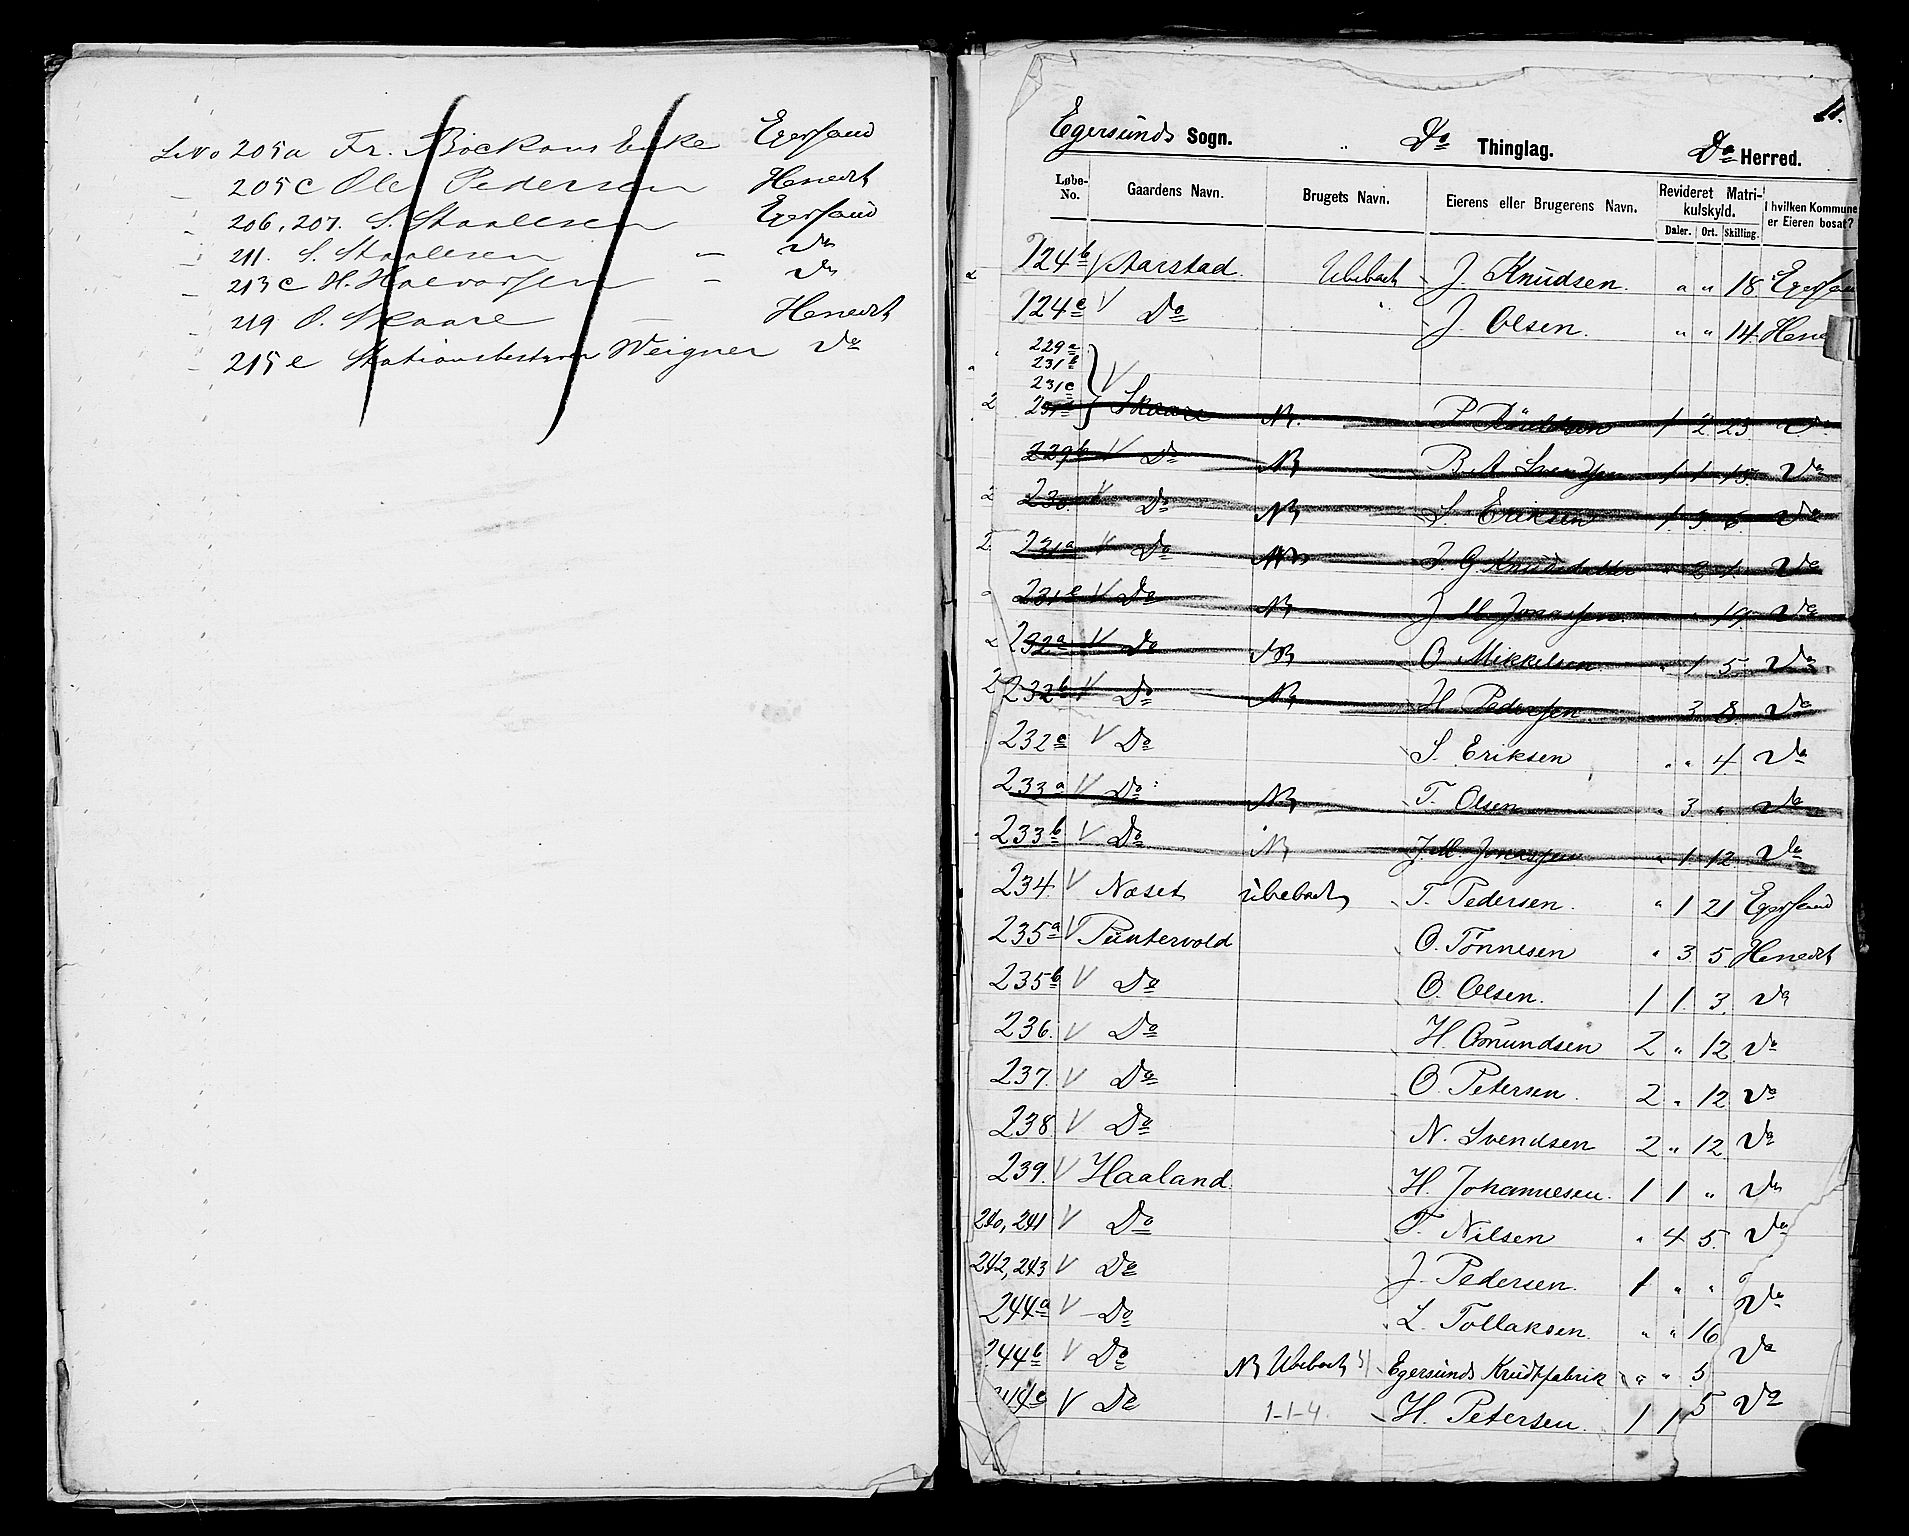 LNo 205a Fr. Böckons Enke Egersund
205c Ole Pedersen Henedt
206, 207. S. Staalesen Egersund
211. S. Staalesen " Do
213c H. Halvorsen " Do
219 O. Skaare — Henedt
215e Stationsbestyrer Weigner Do
11.
Egersunds Sogn. Do Thinglag. Do Herred.
Løbe-No. Gaardens Navn. Brugets Navn. Eierens eller Brugerens Navn. Revideret Matrikulskyld. I hvilken Kommune er Eieren bosat?
Daler. Ort. Skilling.
124b V Aarstad. Ubebodt J. Knudsen. " " 18 Egersund
124c V Do J. Olsen. " " 14 Hened
229a
231b
231c V
231d Skaare N. P. 1 2 23 Do
229b V Do N B. A. Svendsen 1 1 15 Do
230. V Do N S. Eriksen 1 3 6 Do
231a V Do N J. G. Knudsdatter " 2 1 Do
231e V Do N J. M. Jonassen " " 19 Do
232a V Do N O. Mikkelsen " 1 5 Do
232b V Do N H. Pedersen " 3 8 Do
232c V Do S. Eriksen " " 4 Do
233a V Do N T. Olsen " 3 " Do
233b V Do N J. M. Jonassen " 1 12 Do
234. V Næset Ubebodt T. Pedersen. " 1 21 Egersund
235a V Puntervold O. Tønnesen " 3 5 Henedt
235b V Do O. Olsen. 1 1 3 Do
236. V Do H. Omundsen 2 " 12 Do
237. V Do O. Petersen. 2 " 12 Do
238 V Do N. Svendsen 2 " 12 Do
239. V Haaland. H. Johannesen. 1 1 " Do
240, 241 V Do T. Nilsen " 4 5. Do
242, 243 V Do J. Pedersen. 1 " " Do
244a V Do L. Tollaksen. " " 16 Do
244b V Do N Ubebodt Egersunds Krudtfabrik " " 5 Do
244c V Do 1-1-4. H. Petersen. 1 1 5 Do